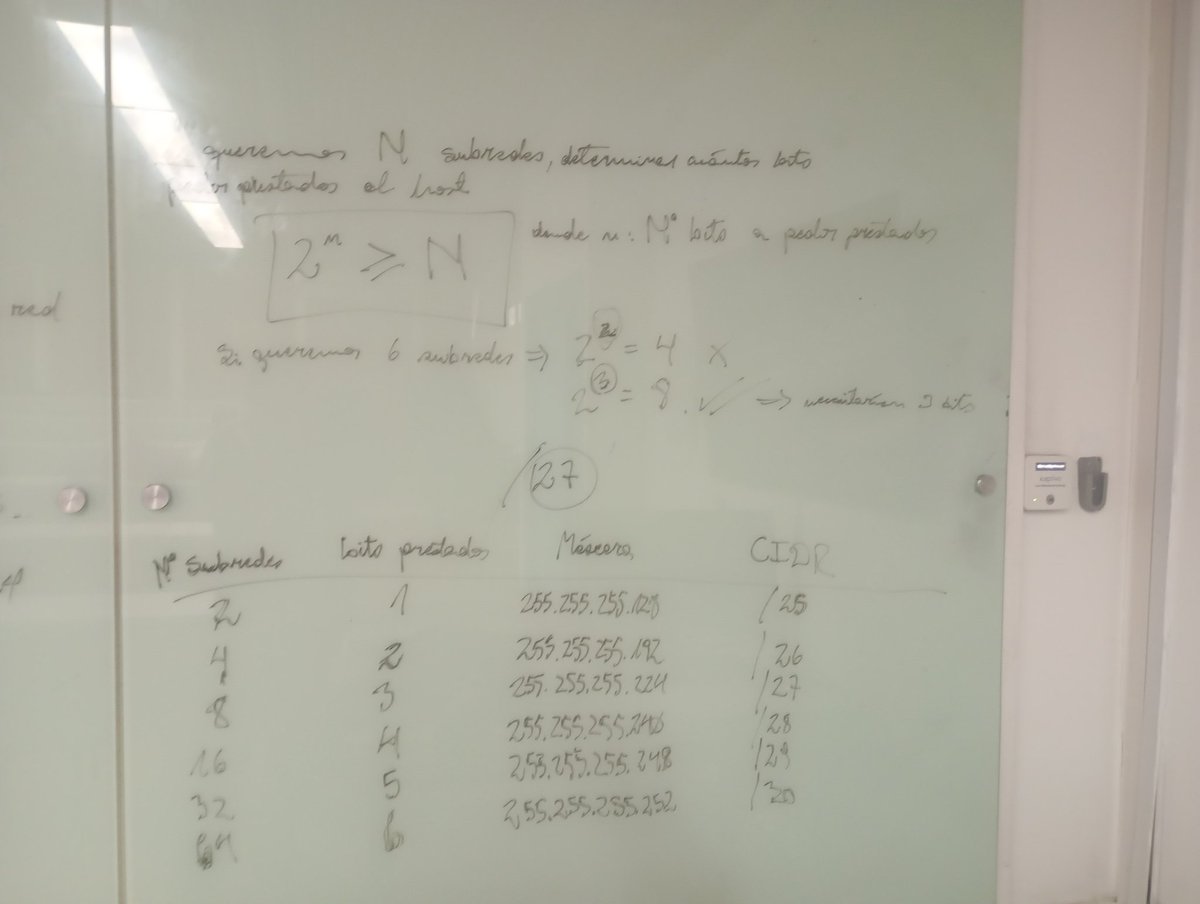 queremos N subredes, determinar cuántos bits
pedir prestados al host
2ⁿ ≥ N
donde n: Nº bits a pedir prestados
red
Si queremos 6 subredes ⇒ 2² = 4 x
2³ = 8. ✓ ⇒ necesitarían 3 bits
/27
Nº Subredes bits prestados Máscara CIDR
2 1 255.255.255.128 /25
4 2 255.255.255.192 /26
8 3 255.255.255.224 /27
16 4 255.255.255.240 /28
32 5 255.255.255.248 /29
64 6 255.255.255.252 /30